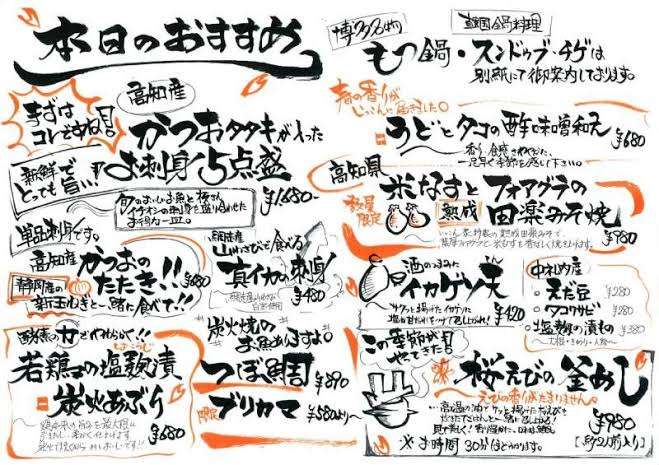 本日のおすすめ
まずは
コレですね!
高知産
かつおタタキが入った
お刺身5点盛
¥1,680-
新鮮で
とっても旨い…
旬のおいしいお魚と
イチオシの刺身を盛り合わせた
お得な一皿。
単品刺身です。
高知産
かつおの
たたき!!
¥680
静岡産の
新玉ねぎと一緒に食べて!!
網走産
山わさびで食べる
真イカの刺身
¥480
若鶏の塩麹漬
炭火あぶり
¥680
炭火焼の
お魚もありますよ。
つぼ鯛
¥890
限定
ブリカマ
¥580より〜
博多名物
韓国鍋料理
もつ鍋・スンドゥブ・チゲは
別紙にて御案内しております。
春の香りが
届きました。
うどとタコの酢味噌和え
¥680
香り、食感
一足早く季節を感じて下さい。
高知県
数量
限定
米なすとフォアグラの
熟成
田楽みそ焼
¥980
酒のつまみ
イカゲソ天
¥420
サクッと揚げたイカゲソに
召し上がれ!
中札内産
・えだ豆
¥280
・タコワサビ
¥380
・塩麹の漬もの
¥380
〜大根・きゅうり・人参〜
この季節が
やってきた!
桜えびの釜めし
えびの香りがたまりません。
¥980
※お時間30分ほどかかります。